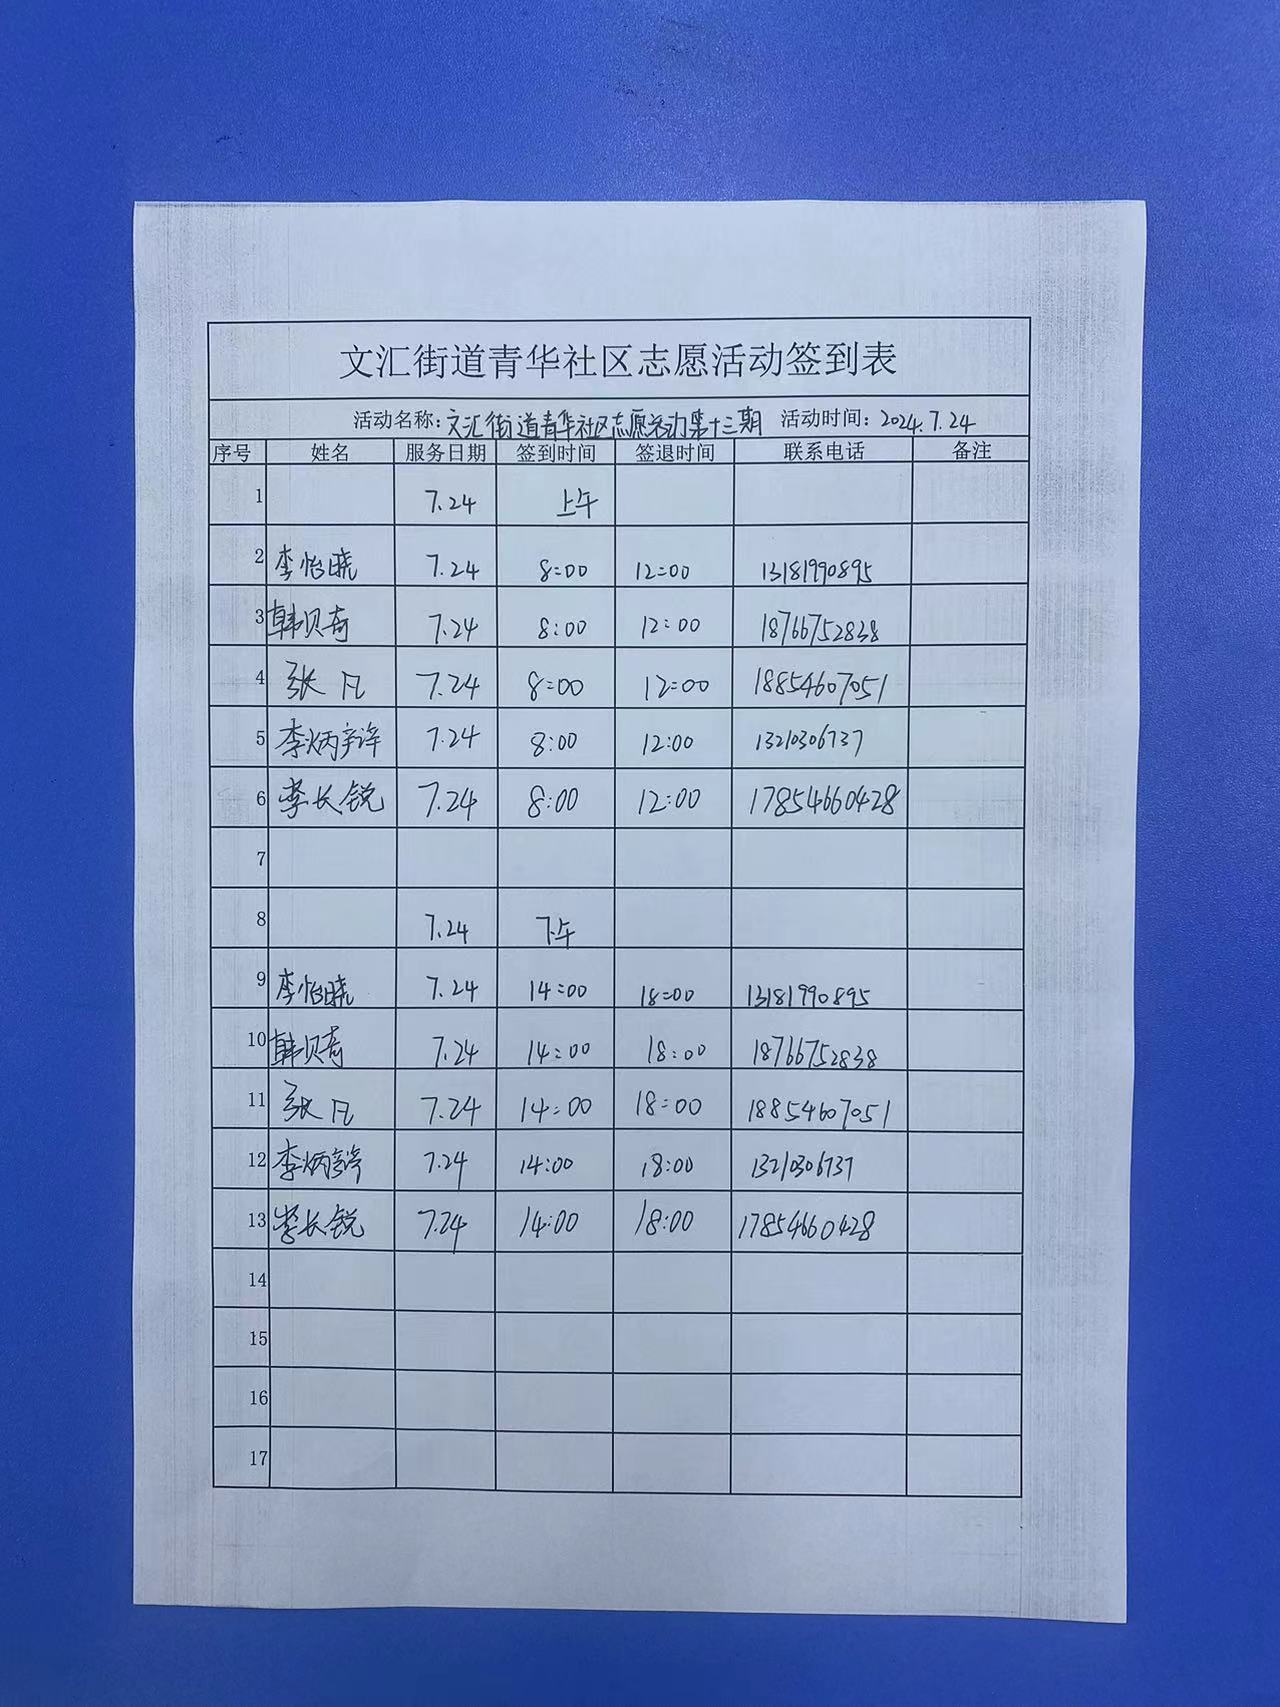 文汇街道青华社区志愿活动签到表
活动名称：文汇街道青华社区志愿活动第十三期 活动时间：2024.7.24
序号 姓名 服务日期 签到时间 签退时间 联系电话 备注
1 7.24 上午
2 李怡晓 7.24 8:00 12:00 13181990895
3 韩贝奇 7.24 8:00 12:00 18766752838
4 张凡 7.24 8:00 12:00 18854607051
5 李炳 7.24 8:00 12:00
6 李长锐 7.24 8:00 12:00 17854660428
7
8 7.24 下午
9 李怡晓 7.24 14:00 18:00 13181990895
10 韩贝奇 7.24 14:00 18:00 18766752838
11 张凡 7.24 14:00 18:00 18854607051
12 李炳 7.24 14:00 18:00
13 李长锐 7.24 14:00 18:00 17854660428
14
15
16
17